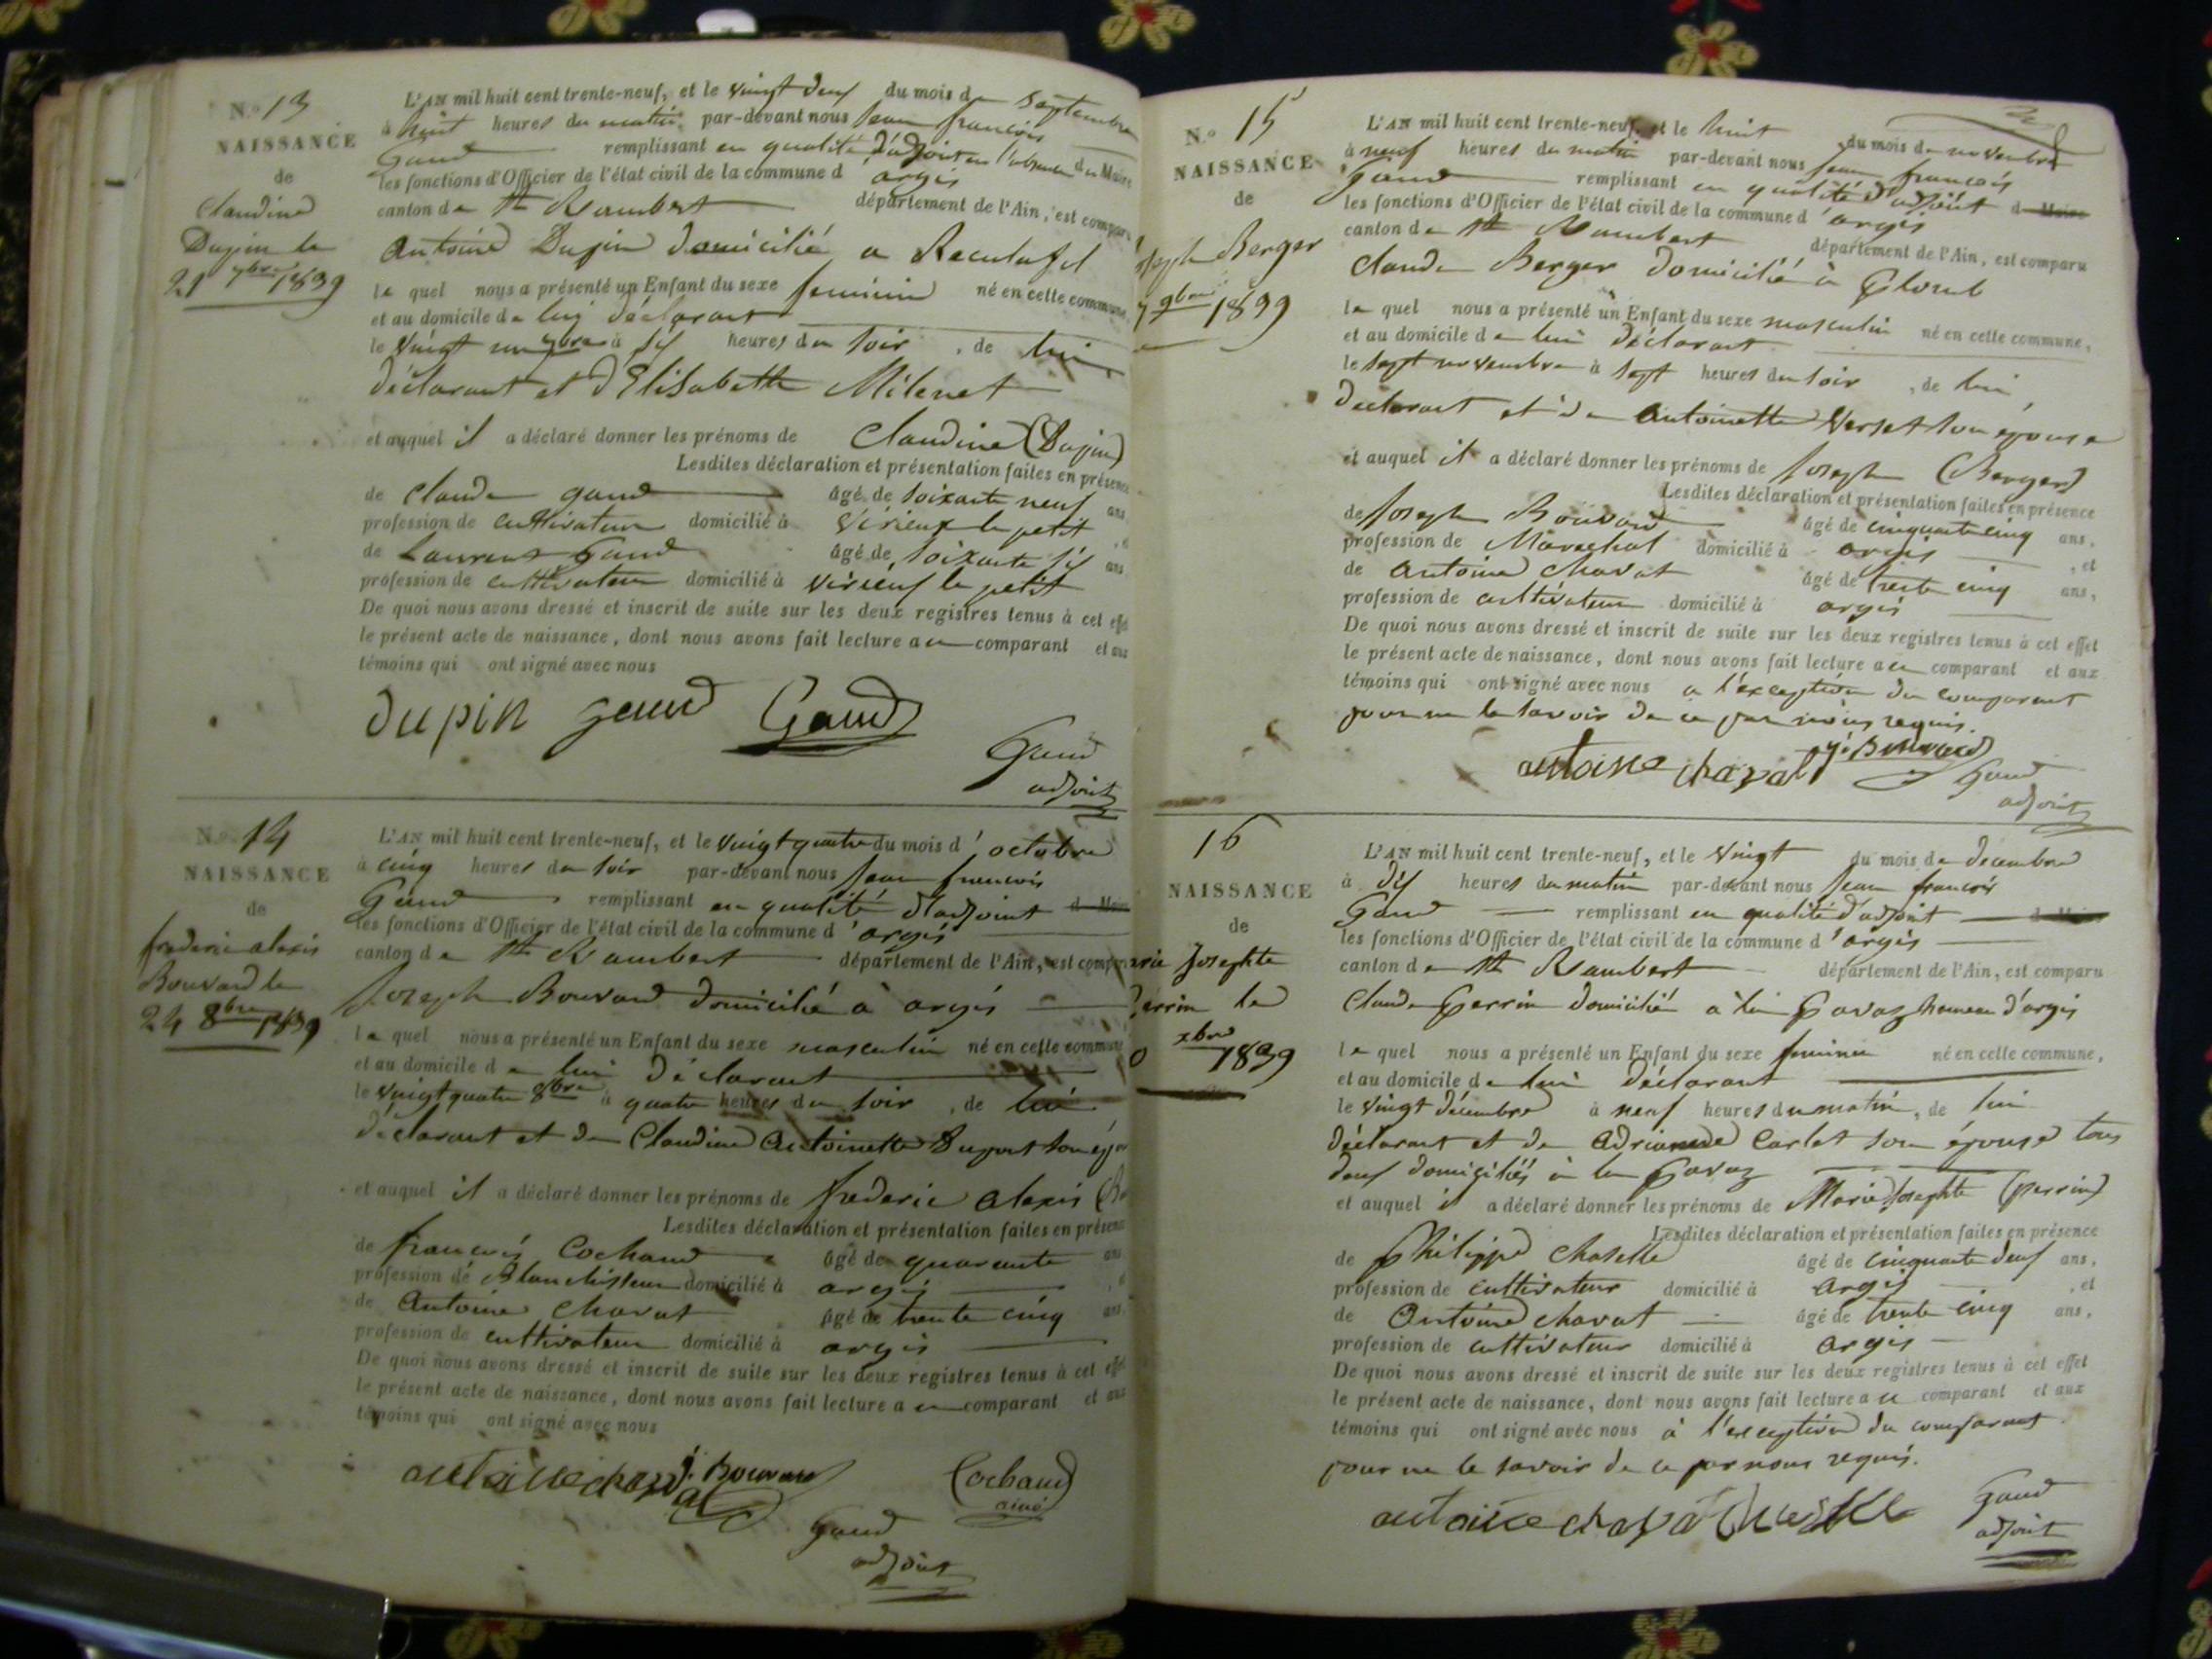 N.o 13
NAISSANCE
de
Claudine
Dupin le
21 7bre 1839
L'AN mil huit cent trente-neuf, et le vingt deux du mois de Septembre
à huit heures du matin par-devant nous Jean françois
Gaud remplissant en qualité d'adjoint en l'absence du Maire
les fonctions d'Officier de l'état civil de la commune d'argis
canton de St Rambert département de l'Ain, est comparu
Antoine Dupin domicilié a Reculafol
le quel nous a présenté un Enfant du sexe feminin né en cette commune,
et au domicile de lui déclarant
le vingt un 7bre à six heures du soir, de lui
déclarant et d'Elisabeth Milenet
et auquel il a déclaré donner les prénoms de Claudine (Dupin)
Lesdites déclaration et présentation faites en présence
de Claude gaud âgé de soixante neuf ans
profession de cultivateur domicilié à Virieux le petit
de Laurent Gaud âgé de soixante six ans
profession de cultivateur domicilié à virieux le petit
De quoi nous avons dressé et inscrit de suite sur les deux registres tenus à cet effet
le présent acte de naissance, dont nous avons fait lecture au comparant et aux
témoins qui ont signé avec nous
dupin gaud Gaud
Gaud
adjoint
N.o 14
NAISSANCE
de
frederic alexis
Bouvard le
24 8bre 1839
L'AN mil huit cent trente-neuf, et le vingt quatre du mois d'octobre
à cinq heures du soir par-devant nous Jean françois
Gaud remplissant en qualité d'adjoint d Maire
les fonctions d'Officier de l'état civil de la commune d'argis
canton de St Rambert département de l'Ain, est comparu
Joseph Bouvard domicilié à argis
le quel nous a présenté un Enfant du sexe masculin né en cette commune
et au domicile de lui déclarant
le vingt quatre 8bre à quatre heures du soir, de lui
déclarant et de Claudine Antoinette Dupont son
et auquel il a déclaré donner les prénoms de frederic alexis
Lesdites déclaration et présentation faites en présence
de françois Cochaud âgé de quarante ans
profession de Blanchisseur domicilié à argis
de Antoine Chavat âgé de trente cinq ans,
profession de cultivateur domicilié à argis
De quoi nous avons dressé et inscrit de suite sur les deux registres tenus à cet effet
le présent acte de naissance, dont nous avons fait lecture au comparant et aux
témoins qui ont signé avec nous
antoine chavat j. Bouvard Cochaud
ainé
Gaud
adjoint
N.o 15
NAISSANCE
de
Joseph Berger
7 9bre 1839
L'AN mil huit cent trente-neuf, et le huit du mois de novembre
à neuf heures du matin par-devant nous Jean françois
Gaud remplissant en qualité d'adjoint d Maire
les fonctions d'Officier de l'état civil de la commune d'argis
canton de St Rambert département de l'Ain, est comparu
Claude Berger domicilié à
le quel nous a présenté un Enfant du sexe masculin né en cette commune,
et au domicile de lui déclarant
le sept novembre à sept heures du soir, de lui
déclarant et de Antoinette Verset son épouse
et auquel il a déclaré donner les prénoms de Joseph (Berger)
Lesdites déclaration et présentation faites en présence
de Joseph Bouvard âgé de cinquante cinq ans,
profession de Marechal domicilié à argis, et
de Antoine Chavat âgé de trente cinq ans,
profession de cultivateur domicilié à argis
De quoi nous avons dressé et inscrit de suite sur les deux registres tenus à cet effet
le présent acte de naissance, dont nous avons fait lecture au comparant et aux
témoins qui ont signé avec nous a l'exception du comparant
pour ne le savoir de ce par nous requis.
antoine chavat j. Bouvard
Gaud
adjoint
16
NAISSANCE
de
arie Josephte
Perrin le
0 xbre 1839
L'AN mil huit cent trente-neuf, et le vingt du mois de decembre
à dix heures du matin par-devant nous Jean françois
Gaud remplissant en qualité d'adjoint d Maire
les fonctions d'Officier de l'état civil de la commune d'argis
canton de St Rambert département de l'Ain, est comparu
Claude Perrin domicilié à la Gavaz hameau d'argis
le quel nous a présenté un Enfant du sexe feminin né en cette commune,
et au domicile de lui déclarant
le vingt décembre à neuf heures du matin, de lui
déclarant et de Adrianne Carlet son épouse tous
deux domiciliés à la Gavaz
et auquel il a déclaré donner les prénoms de Marie Josephte (perrin)
Lesdites déclaration et présentation faites en présence
de Philippe Chaselle âgé de cinquante deux ans,
profession de cultivateur domicilié à argis, et
de Antoine Chavat âgé de trente cinq ans,
profession de cultivateur domicilié à argis
De quoi nous avons dressé et inscrit de suite sur les deux registres tenus à cet effet
le présent acte de naissance, dont nous avons fait lecture au comparant et aux
témoins qui ont signé avec nous à l'exception du comparant
pour ne le savoir de ce par nous requis.
antoine chavat
Gaud
adjoint